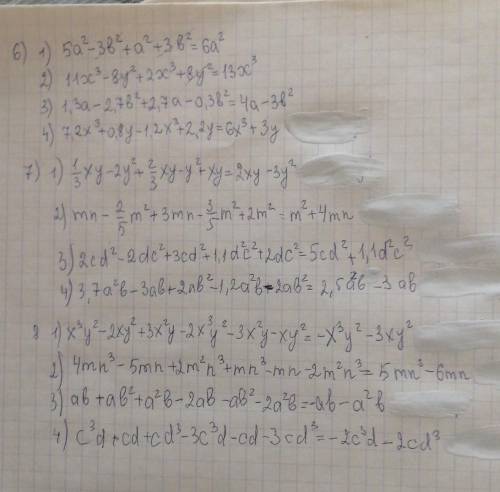 6) 1) 5a²-3b²+a²+3b²=6a²
2) 11x³-8y²+2x³+8y²=13x³
3) 1,3a-2,7b²+2,7a-0,3b²=4a-3b²
4) 7,2x³+0,8y-1,2x³+2,2y=6x³+3y
7) 1) 1/3xy-2y²+2/3xy-y²+xy=2xy-3y²
2) mn-2/5m²+3mn-3/5m²+2m²=m²+4mn
3) 2cd²-2dc²+3cd²+1,1d²c²+2dc²=5cd²+1,1d²c²
4) 3,7a²b-3ab+2ab²-1,2a²b-2ab²=2,5a²b-3ab
8 1) x³y²-2xy²+3x²y-2x³y²-3x²y-xy²=-x³y²-3xy²
2) 4mn³-5mn+2m²n³+mn³-mn-2m²n³=5mn³-6mn
3) ab+ab²+a²b-2ab-ab²-2a²b=-ab-a²b
4) c³d+cd+cd³-3c³d-cd-3cd³=-2c³d-2cd³